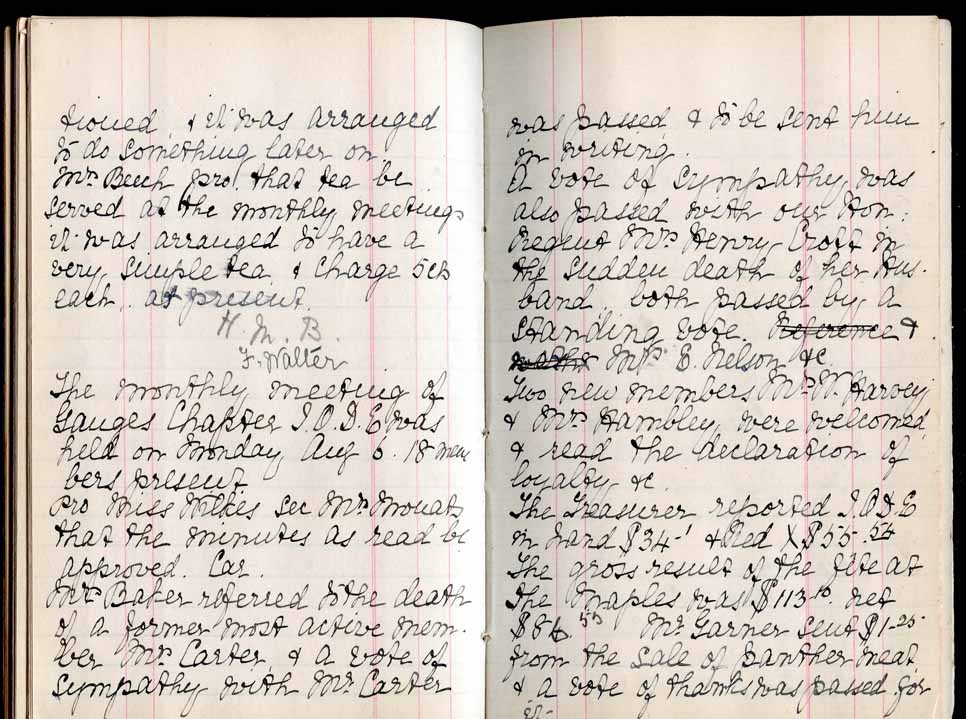 tioned, & it was arranged
to do something later on.
Mrs Beech pro. that tea be
served at the monthly meetings
it was arranged to have a
very simple tea & charge 5cts
each. at present.
H. M. B.
F. Walter
The monthly meeting of
Ganges Chapter I.O.D.E was
held on Monday Aug 6. 18 mem
bers present.
Pro Miss Wilkes Sec Mrs Mouat
that the minutes as read be
approved. Car.
Mrs Baker referred to the death
of a former most active mem-
ber Mrs Carter, & a vote of
sympathy with Mr Carter
was passed & to be sent him
in writing.
A vote of sympathy was
also passed with our Hon.
Regent Mrs Henry Croft in
the sudden death of her Hus-
band. both passed by a
standing vote. Reference &
Mrs E. Nelson &c.
Two new members Mrs W. Harvey
& Mrs Hambley, were welcomed
& read the declaration of
loyalty &c.
The Treasurer reported I.O.D.E
in hand $34.1 & Red X $55.54
The gross result of the fête at
The Maples was $113.10. net
Mr. Garner sent $1.25.
from the sale of panther meat
& a vote of thanks was passed for
it.